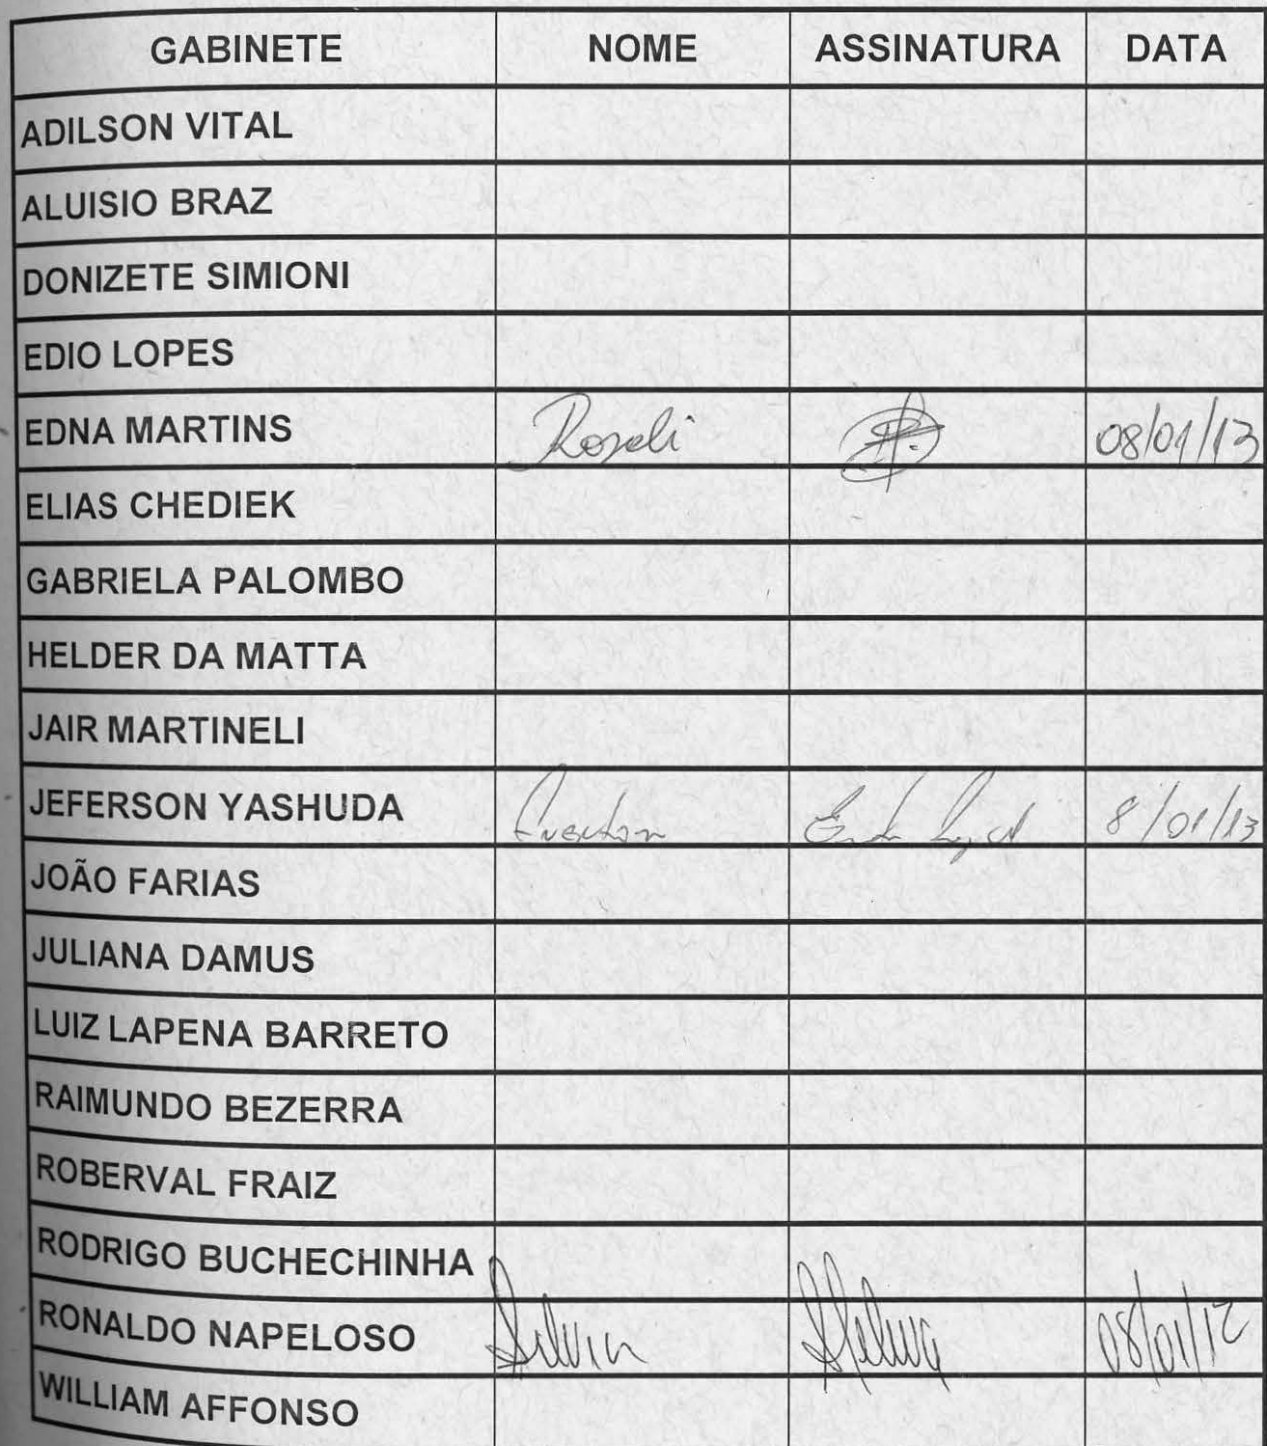 GABINETE NOME ASSINATURA DATA
ADILSON VITAL
ALUISIO BRAZ
DONIZETE SIMIONI
EDIO LOPES
EDNA MARTINS Roseli 08/01/13
ELIAS CHEDIEK
GABRIELA PALOMBO
HELDER DA MATTA
JAIR MARTINELI
JEFERSON YASHUDA Everton 8/01/13
JOÃO FARIAS
JULIANA DAMUS
LUIZ LAPENA BARRETO
RAIMUNDO BEZERRA
ROBERVAL FRAIZ
RODRIGO BUCHECHINHA
RONALDO NAPELOSO Silvia 08/01/12
WILLIAM AFFONSO